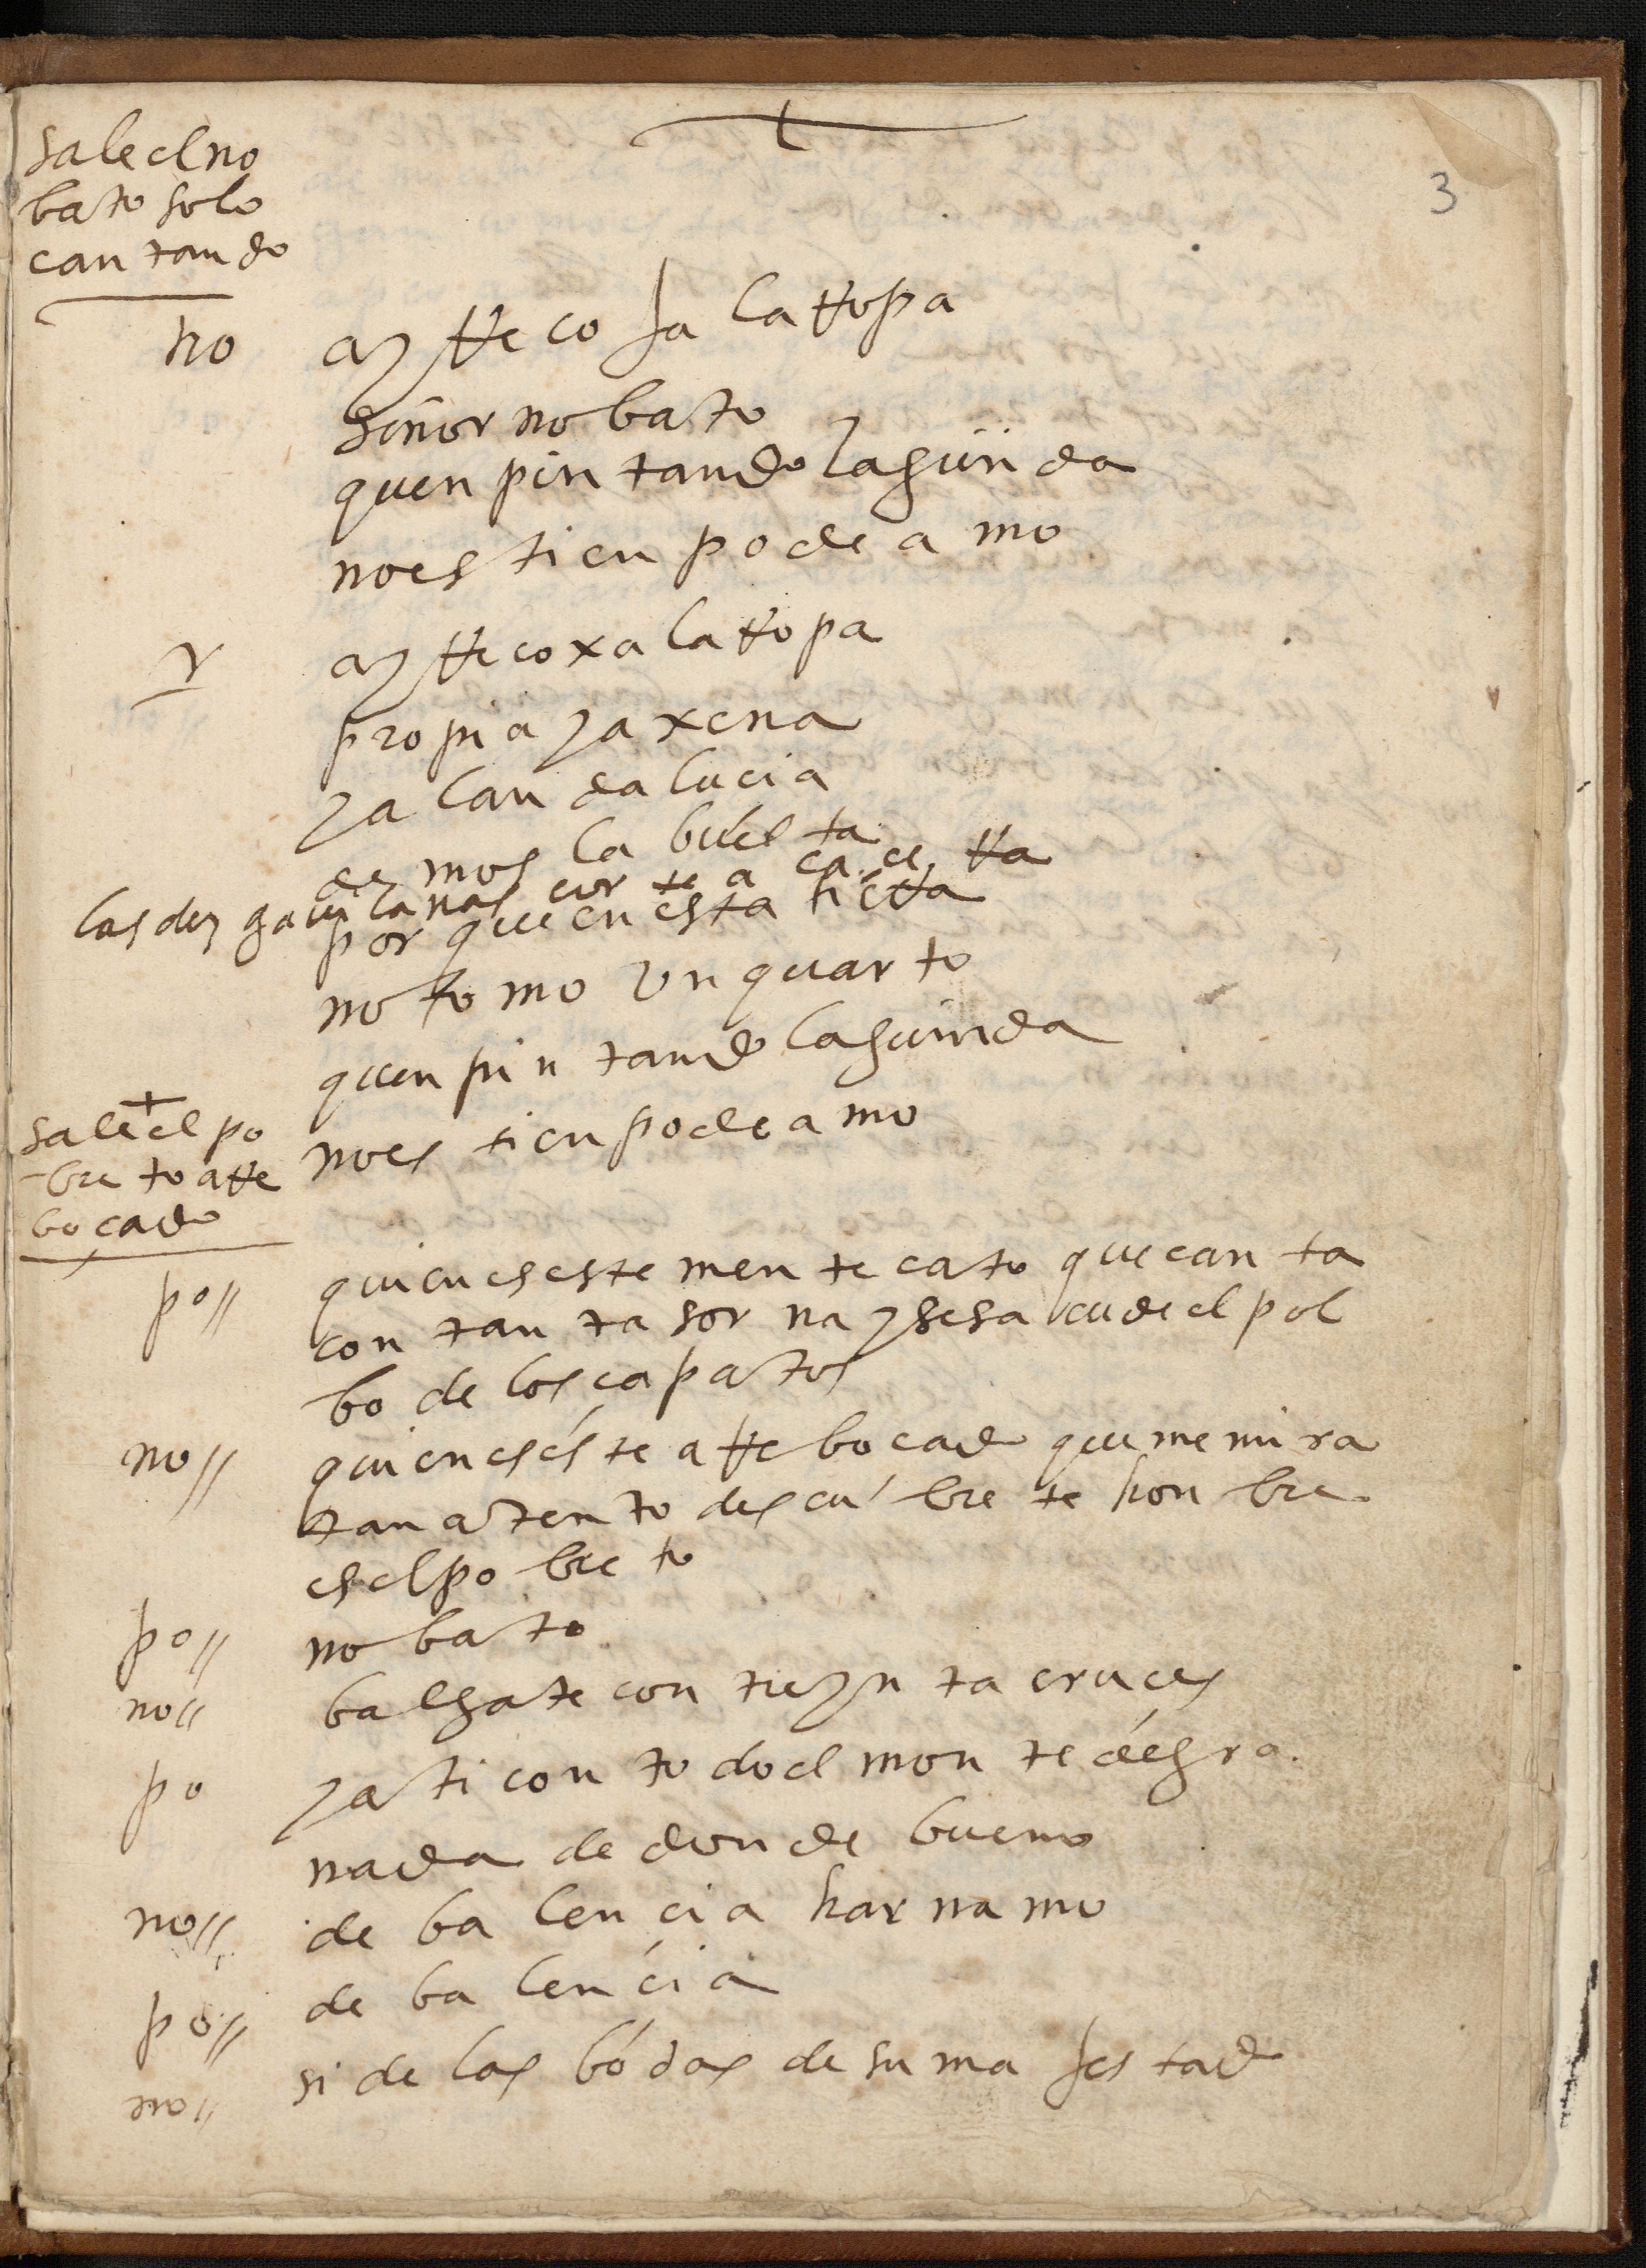 3
sale el no
bato solo
cantando
no ay rrecoja la rropa
señor nobato
quen pintando la guinda
no es tienpo de amo
Y ay rrecoxa la rropa
propia y axena
y al andalucia
demos la buelta
las dey gavilanas corte a ca
por que en esta tierra
no tomo un quarto
quen pintando la guinda
no es tienpo de amo
sale el po
breto arre
boçado
po// quien es este mentecato que canta
con tanta sorna y se sacude el pol
bo de los capatos
no// quien es este arrebocado que me mira
tan atento descubrete honbre
es el pobreto
po// nobato
no// balgate con treynta cruces
po y a ti con todo el monte de gra
nada de donde bueno
no// de balencia harnamo
po// de balencia
no// si de las bodas de su majestad